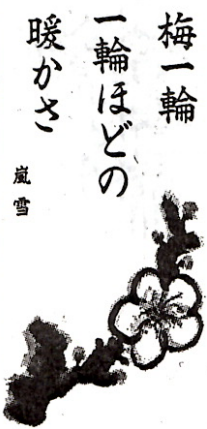 梅一輪
一輪ほどの
暖かさ
嵐雪